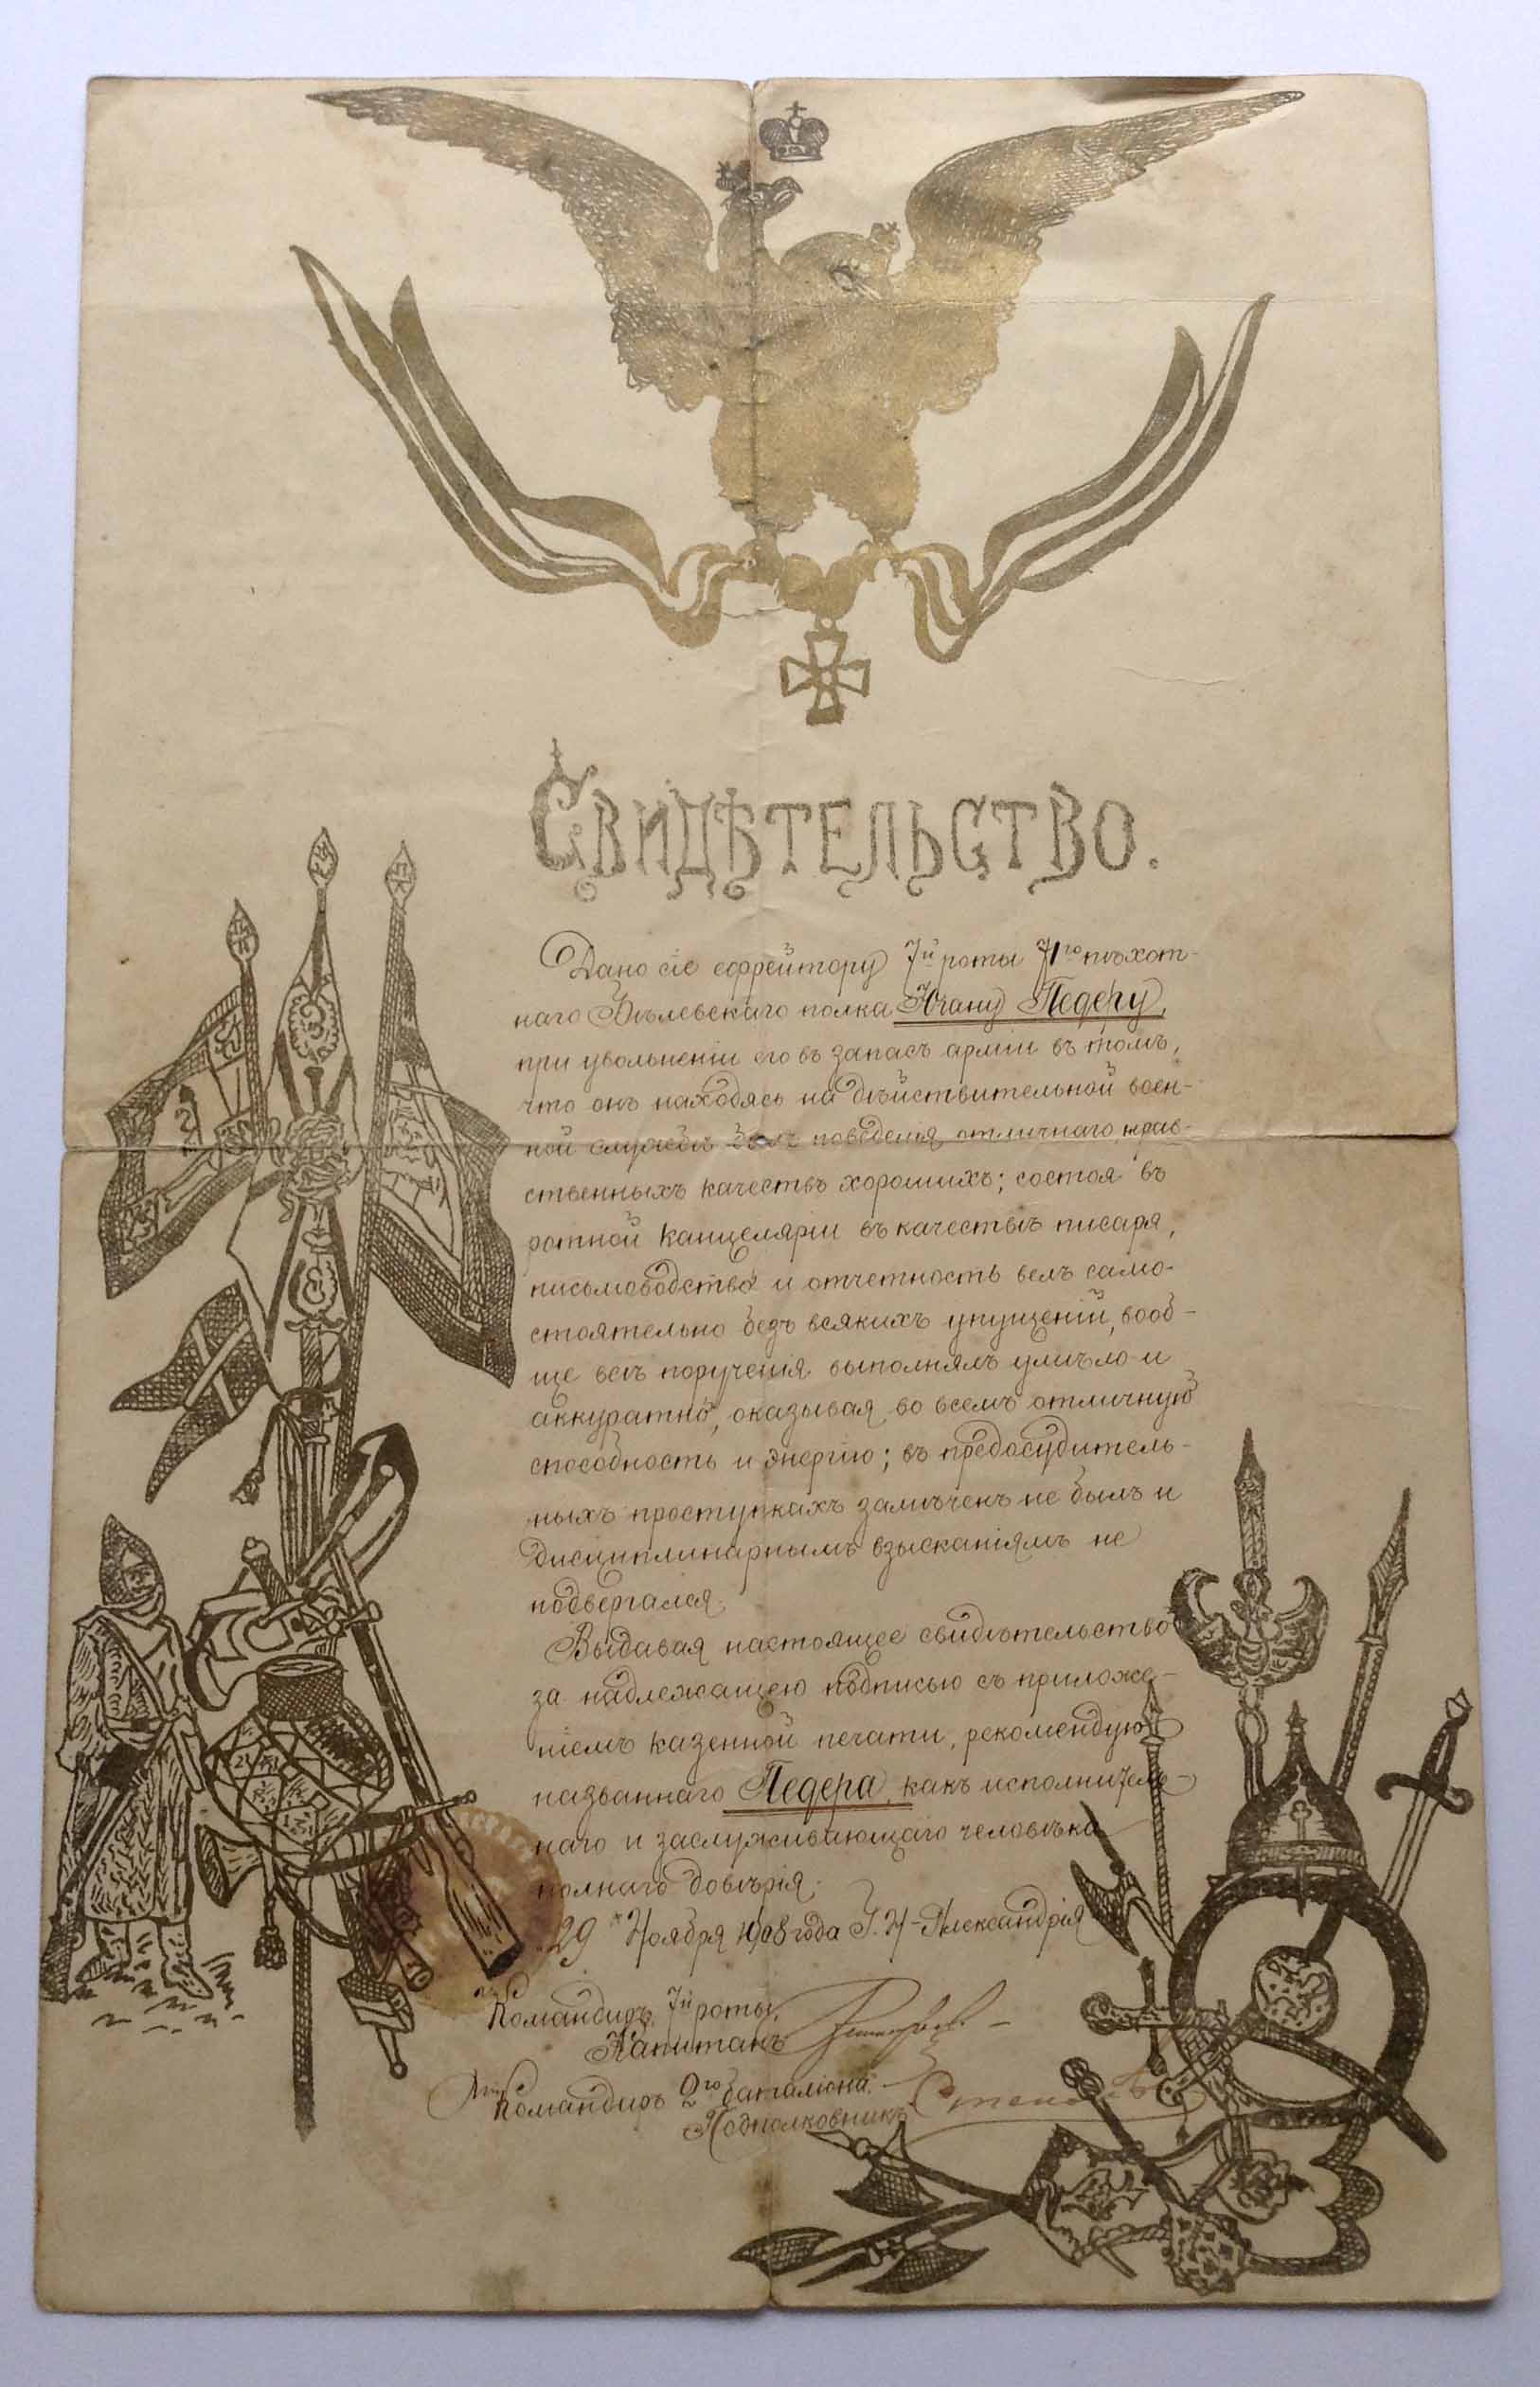 Свидѣтельство.
Дано сіе ефрейтору 7й роты 71го пѣхот-
наго Бѣлевскаго полка Югану Педеру,
при увольненіи его въ запасъ арміи въ томъ,
что онъ находясь на дѣйствительной воен-
ной службѣ былъ поведенія отличнаго, нрав-
ственныхъ качествъ хорошихъ; состоя въ
ротной канцеляріи въ качествѣ писаря,
письмоводство и отчетность велъ само-
стоятельно безъ всякихъ упущеній, вооб-
ще всѣ порученія выполнялъ умѣло и
аккуратно, оказывая во всемъ отличную
способность и энергію; въ предосудитель-
ныхъ проступкахъ замѣченъ не былъ и
дисциплинарнымъ взысканіямъ не
подвергался.
Выдавая настоящее свидѣтельство
за надлежащею подписью съ приложе-
ніемъ казенной печати, рекомендую
названнаго Педера, какъ исполнитель-
наго и заслуживающаго человѣка
полнаго довѣрія.
29 Ноября 1908 года Г. Н-Александрія
Командиръ 7й роты,
Капитанъ
Командиръ 2го баталіона,
Подполковникъ